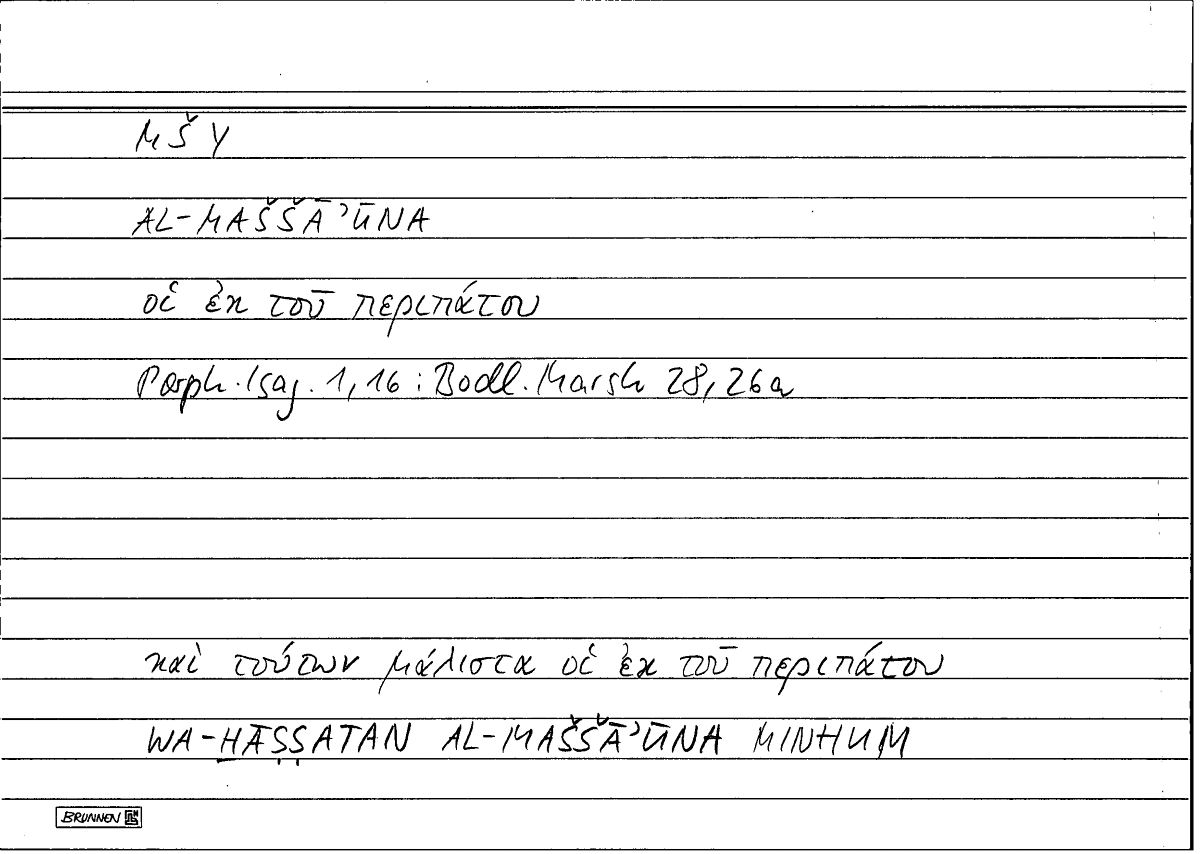 MŠY
AL-MAŠŠĀʾŪNA
οἱ ἐκ τοῦ περιπάτου
Porph. Isag. 1,16 : Bodl. Marsh 28, 26a
καὶ τούτων μάλιστα οἱ ἐκ τοῦ περιπάτου
WA-H̱ĀṢṢATAN AL-MAŠŠĀʾŪNA MINHUM
BRUNNEN